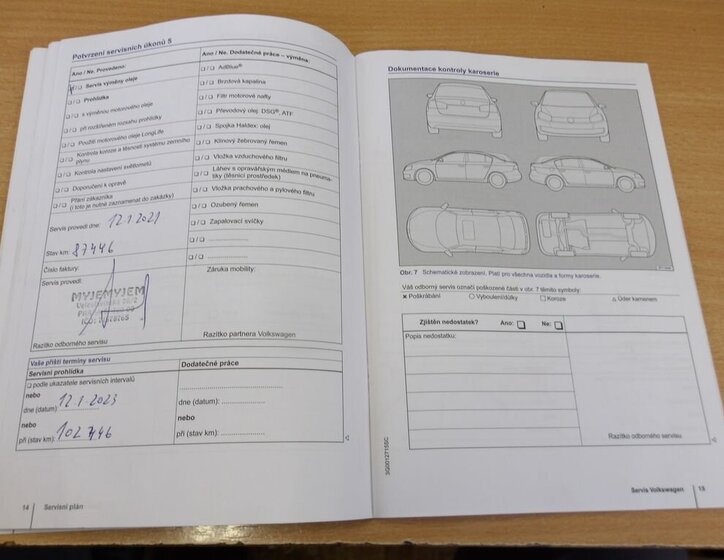 Potvrzení servisních úkonů 5
Ano / Ne. Provedeno:
Servis výměny oleje
Prohlídka
s výměnou motorového oleje
při rozšířeném rozsahu prohlídky
Použití motorového oleje LongLife
Kontrola koroze a těsnosti systému zemního plynu
Kontrola nastavení světlometů
Doporučení k opravě
Přání zákazníka
(i toto je nutné zaznamenat do zakázky)
Servis provedl dne: 12.1.2021
Stav km: 87446
Číslo faktury:
Servis provedl:
MYJEMYJEM
Razítko odborného servisu
Ano / Ne. Dodatečné práce – výměna:
AdBlue®
Brzdová kapalina
Filtr motorové nafty
Převodový olej: DSG®, ATF
Spojka Haldex: olej
Klínový žebrovaný řemen
Vložka vzduchového filtru
Láhev s opravářským médiem na pneumatiky (těsnicí prostředek)
Vložka prachového a pylového filtru
Ozubený řemen
Zapalovací svíčky
Záruka mobility:
Razítko partnera Volkswagen
Vaše příští termíny servisu
Servisní prohlídka
podle ukazatele servisních intervalů
nebo
dne (datum): 12.1.2023
nebo
při (stav km): 102446
Dodatečné práce
dne (datum):
nebo
při (stav km):
14 Servisní plán
Dokumentace kontroly karoserie
Obr. 7 Schematické zobrazení, Platí pro všechna vozidla a formy karoserie.
Váš odborný servis označí poškozené části v obr. 7 těmito symboly:
× Poškrábání ○ Vyboulení/důlky □ Koroze △ Úder kamenem
Zjištěn nedostatek? Ano: Ne:
Popis nedostatku:
Razítko odborného servisu
3G0012715SC
Servis Volkswagen 15